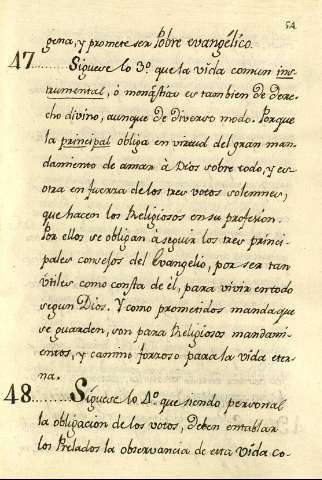 54
gena, y promete ser Pobre evangélico.
47........ Siguese lo 3º. que la vida comun ins-
trumental, ó monástica es tambien de dere-
cho divino, aunque de diverso modo. Porque
la principal obliga en virtud del gran man-
damiento de amar à Dios sobre todo, y es-
otra en fuerza de los tres votos solemnes,
que hacen los Religiosos en su profesion.
Por ellos se obligan à seguir los tres princi-
pales consejos del Evangelio, por ser tan
útiles como consta de èl, para vivir en todo
segun Dios. Y como prometidos manda que
se guarden, son para Religiosos mandami-
entos, y camino forzoso para la vida eter-
na.
48........ Siguese lo 4º. que siendo personal
la obligacion de los votos, deben entablar
los Prelados la observancia de esta vida co-